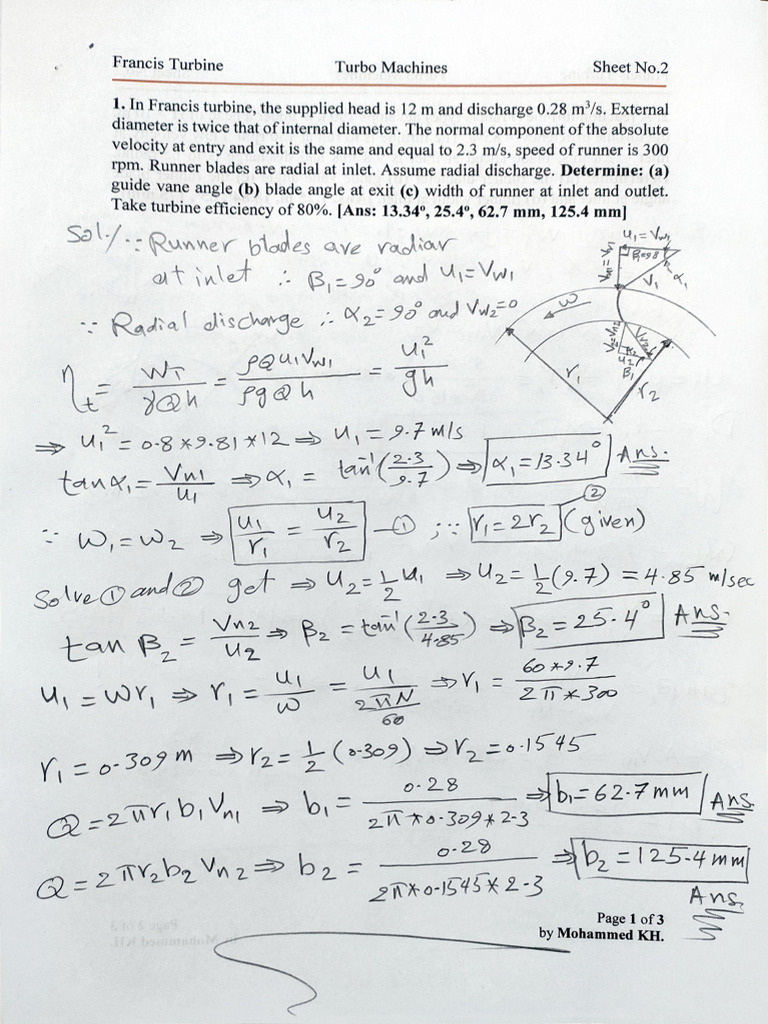 Francis Turbine Turbo Machines Sheet No.2
1. In Francis turbine, the supplied head is 12 m and discharge 0.28 m³/s. External
diameter is twice that of internal diameter. The normal component of the absolute
velocity at entry and exit is the same and equal to 2.3 m/s, speed of runner is 300
rpm. Runner blades are radial at inlet. Assume radial discharge. Determine: (a)
guide vane angle (b) blade angle at exit (c) width of runner at inlet and outlet.
Take turbine efficiency of 80%. [Ans: 13.34º, 25.4º, 62.7 mm, 125.4 mm]
Sol./ ∵ Runner blades are radiar
at inlet ∴ β₁=90° and u₁=Vw₁
∵ Radial discharge ∴ α₂=90° and Vw₂=0
u₁=Vw₁
β₁=90
V₁ α₁
ω
r₁
r₂
u₂
β₁
ηt = WT/γQh = ρQu₁Vw₁/ρgQh = u₁²/gh
⇒ u₁²=0.8*9.81*12 ⇒ u₁=9.7 m/s
tanα₁=Vn1/u₁ ⇒ α₁ = tan⁻¹(2.3/9.7) ⇒ α₁=13.34° Ans.
∵ ω₁=ω₂ ⇒ u₁/r₁ = u₂/r₂ —① ; ∵ r₁=2r₂ (given) ②
Solve ① and ② get ⇒ u₂=½u₁ ⇒ u₂=½(9.7) = 4.85 m/sec
tan β₂ = Vn2/u₂ ⇒ β₂ = tan⁻¹(2.3/4.85) ⇒ β₂=25.4° Ans.
u₁ = ωr₁ ⇒ r₁ = u₁/ω = u₁/(2πN/60) ⇒ r₁ = 60*9.7/2π*300
r₁=0.309 m ⇒ r₂=½(0.309) ⇒ r₂=0.1545
Q=2πr₁b₁Vn₁ ⇒ b₁= 0.28/2π*0.309*2.3 ⇒ b₁=62.7 mm Ans.
Q=2πr₂b₂Vn2 ⇒ b₂ = 0.28/2π*0.1545*2.3 ⇒ b₂=125.4 mm
Ans.
Page 1 of 3
by Mohammed KH.